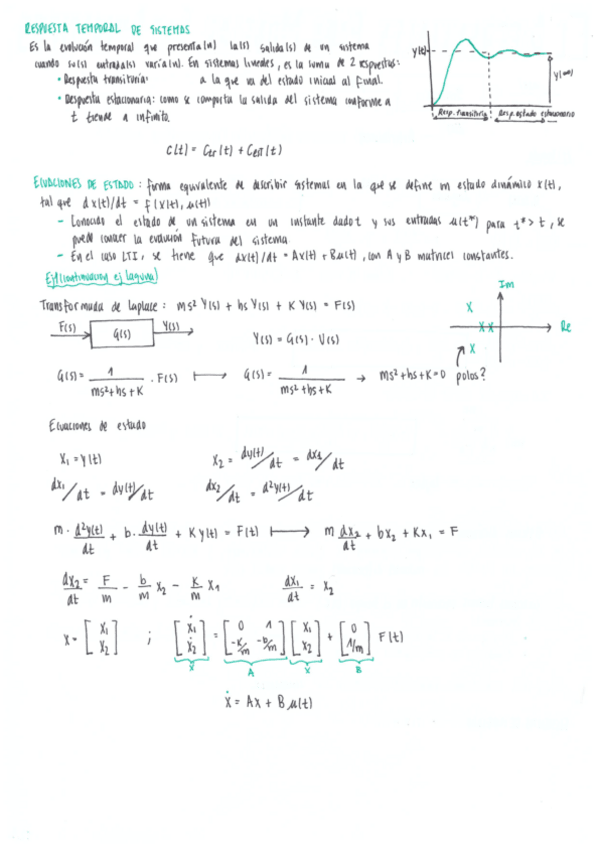 RESPUESTA TEMPORAL DE SISTEMAS
Es la evolución temporal que presenta(n) la(s) salida(s) de un sistema
cuando su(s) entrada(s) varía(n). En sistemas lineales, es la suma de 2 respuestas:
• Respuesta transitoria: a la que va del estado inicial al final.
• Respuesta estacionaria: como se comporta la salida del sistema conforme a
t tiende a infinito.
y(t)
y(∞)
Resp. transitoria
Resp. estado estacionario
c(t) = ctr(t) + cest(t)
ECUACIONES DE ESTADO: forma equivalente de describir sistemas en la que se define un estado dinámico x(t),
tal que dx(t)/dt = f(x(t), u(t))
– Conocido el estado de un sistema en un instante dado t y sus entradas u(t*) para t* > t, se
puede conocer la evolución futura del sistema
– En el caso LTI, se tiene que dx(t)/dt = Ax(t) + Bu(t), con A y B matrices constantes.
Ej1 (continuación ej laguna)
Transformada de Laplace: ms² Y(s) + bs Y(s) + K Y(s) = F(s)
F(s) G(s) Y(s)
Y(s) = G(s) · U(s)
Im
Re
x
x x
x
G(s) = 1 / ms²+bs+K · F(s) ⟼ G(s) = 1 / ms²+bs+K → ms²+bs+K=0 polos?
Ecuaciones de estado
x₁ = y(t) x₂ = dy(t)/dt = dx₁/dt
dx₁/dt = dy(t)/dt dx₂/dt = d²y(t)/dt
m · d²y(t)/dt + b · dy(t)/dt + K y(t) = F(t) ⟼ m dx₂/dt + bx₂ + Kx₁ = F
dx₂/dt = F/m – b/m x₂ – K/m x₁ dx₁/dt = x₂
x = [x₁ x₂] ; [ẋ₁ ẋ₂] = [0 1 -K/m -b/m] [x₁ x₂] + [0 1/m] F(t)
ẋ A x B
ẋ = Ax + Bu(t)